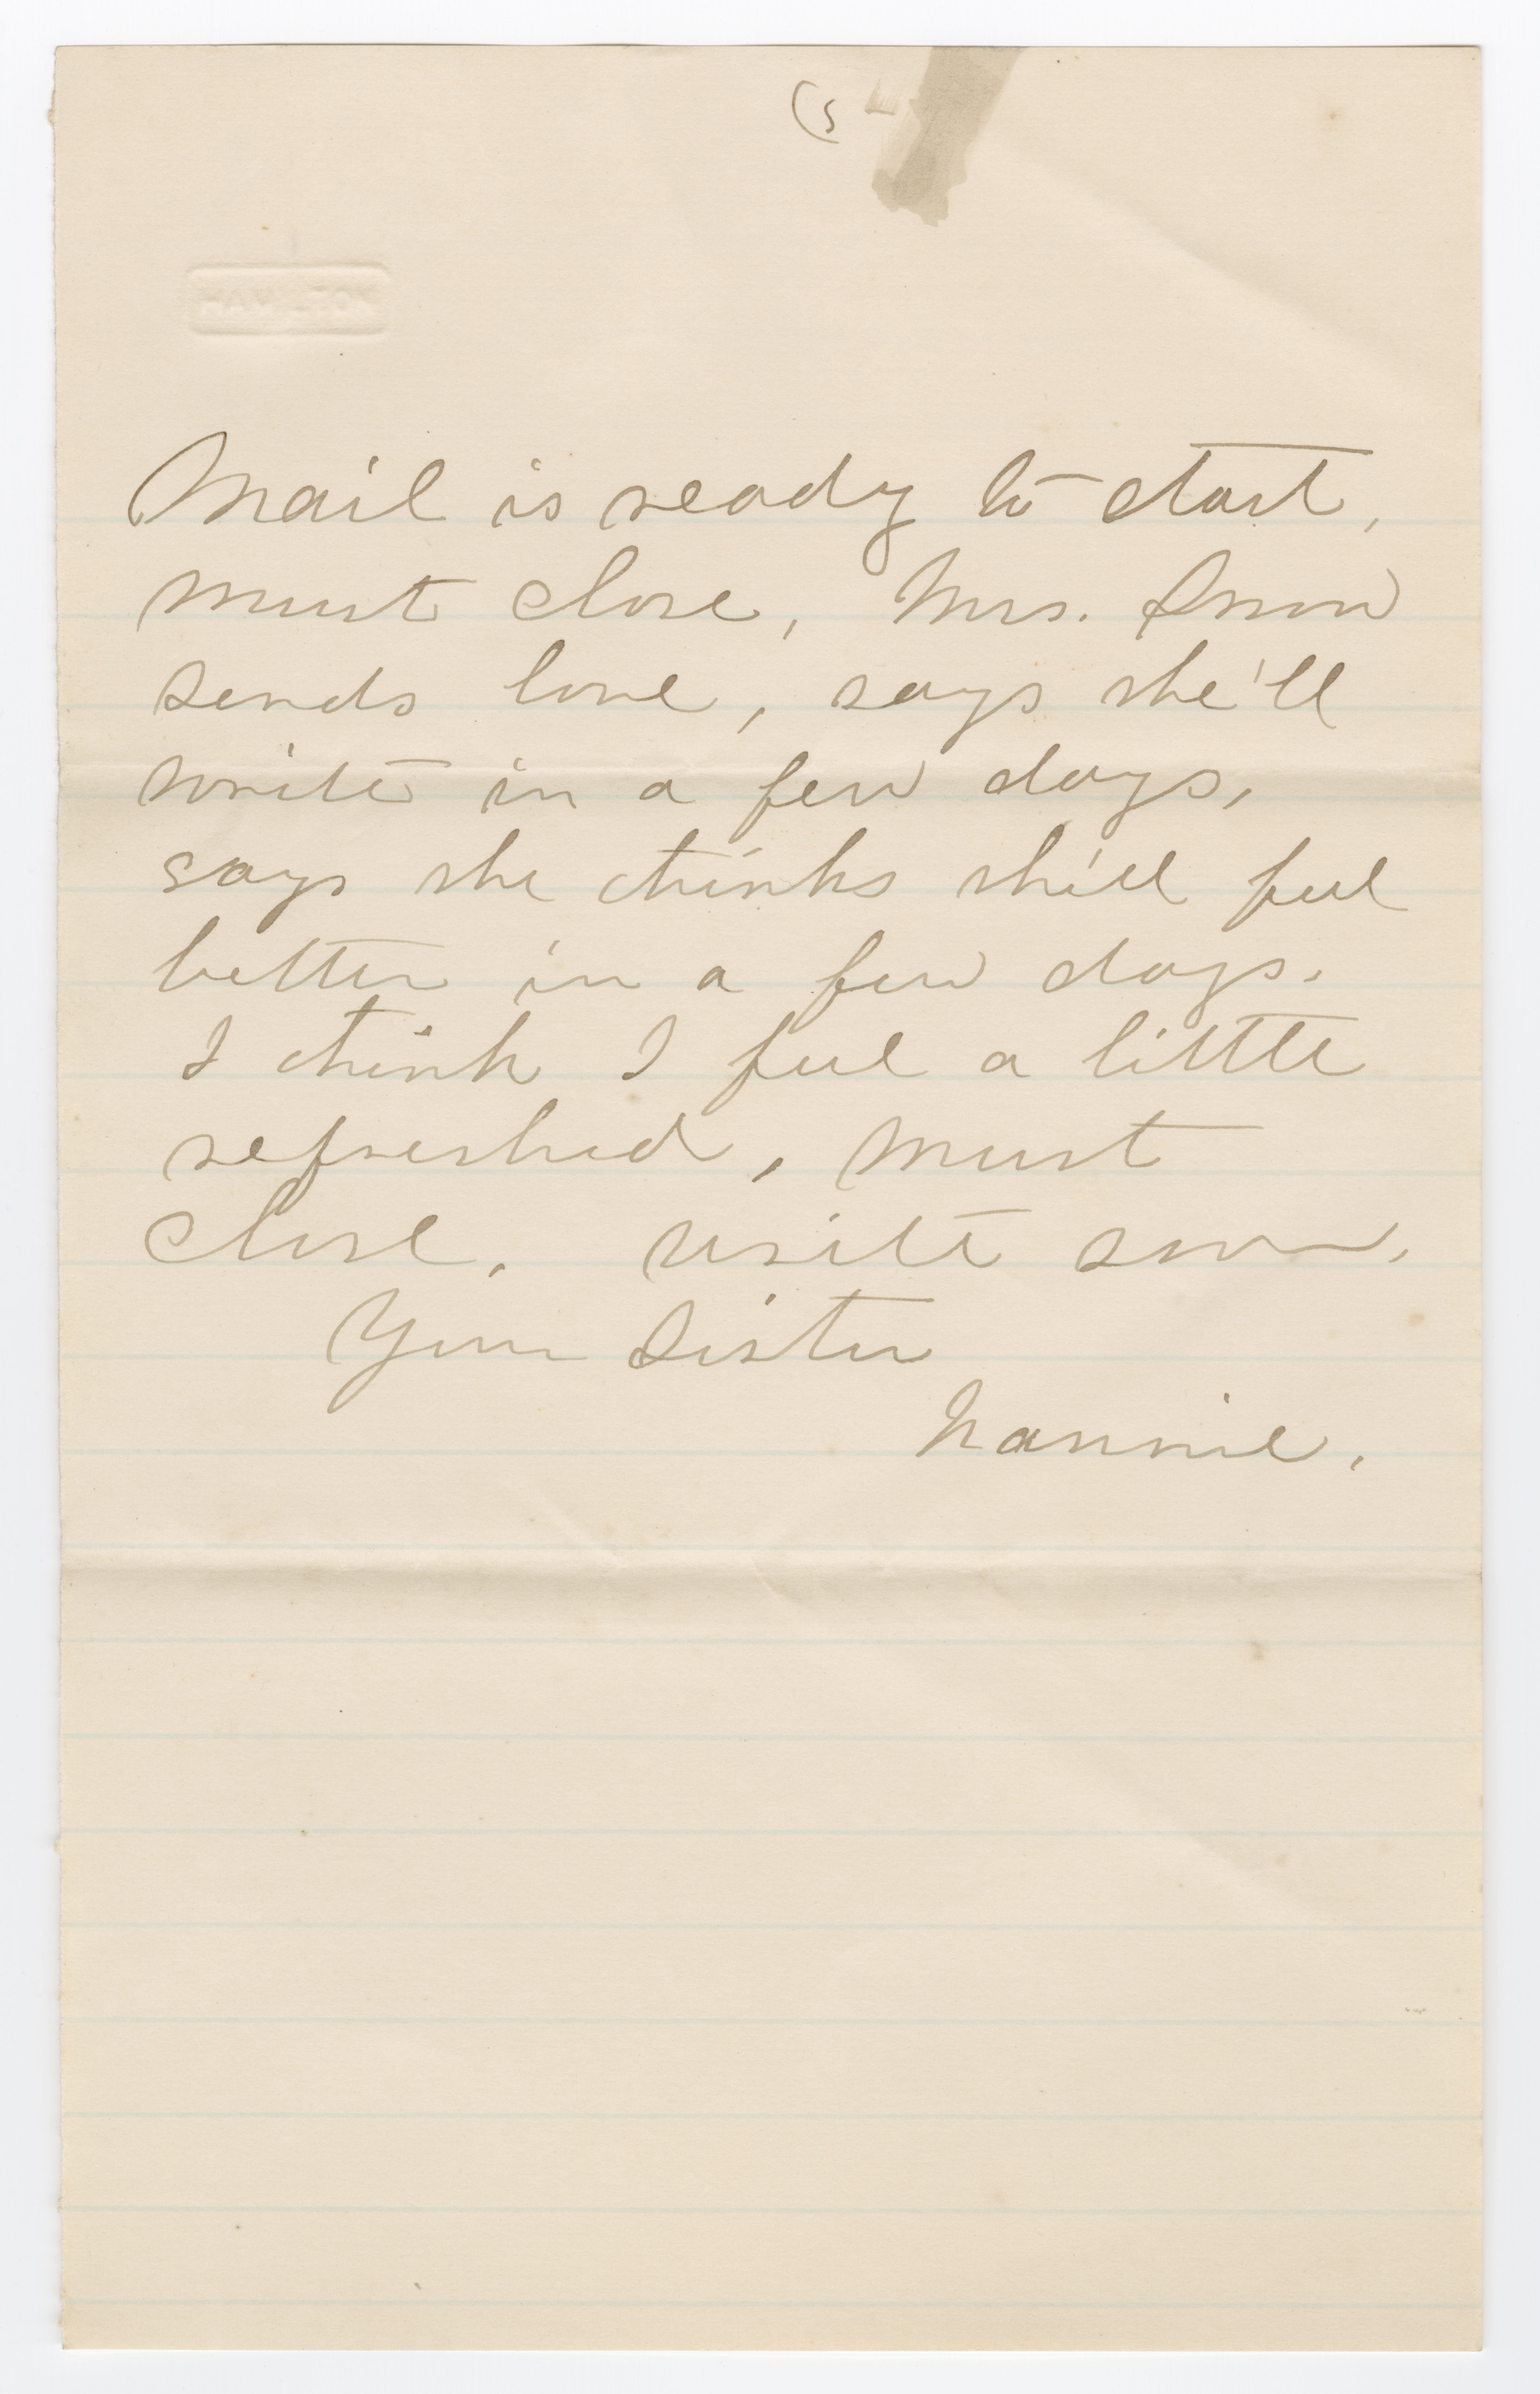 (5
HAMILTON
Mail is ready to start,
must close, Mrs. Snow
sends love, says she'll
write in a few days,
says she thinks she'll feel
better in a few days.
I think I feel a little
refreshed, must
close. write soon.
Your Sister
Nannie.